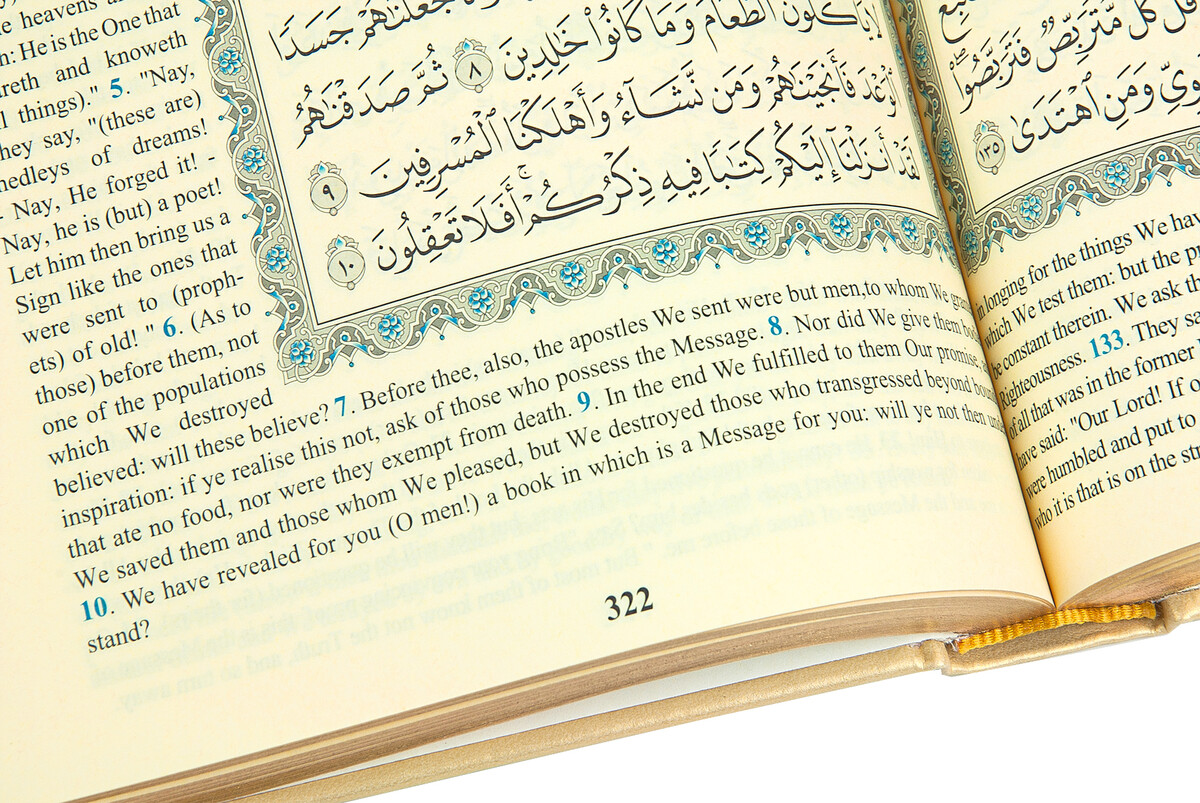 جَعَلْنَٰهُمْ جَسَدًا
لَّا يَأْكُلُونَ ٱلطَّعَامَ وَمَا كَانُوا۟ خَٰلِدِينَ ٨ ثُمَّ صَدَقْنَٰهُمُ
ٱلْوَعْدَ فَأَنجَيْنَٰهُمْ وَمَن نَّشَآءُ وَأَهْلَكْنَا ٱلْمُسْرِفِينَ ٩
لَقَدْ أَنزَلْنَآ إِلَيْكُمْ كِتَٰبًا فِيهِ ذِكْرُكُمْ ۖ أَفَلَا تَعْقِلُونَ ١٠
heavens
h: He is the One that
areth and knoweth
l things)." 5. "Nay,
they say, "(these are)
medleys of dreams!
- Nay, He forged it!
Nay, he is (but) a poet!
Let him then bring us a
Sign like the ones that
were sent to (proph-
ets) of old! " 6. (As to
those) before them, not
one of the populations
which We destroyed
believed: will these believe? 7. Before thee, also, the apostles We sent were but men,to whom We
inspiration: if ye realise this not, ask of those who possess the Message. 8. Nor did We give them
that ate no food, nor were they exempt from death. 9. In the end We fulfilled to them Our promise,
We saved them and those whom We pleased, but We destroyed those who transgressed beyond
10. We have revealed for you (O men!) a book in which is a Message for you: will ye not then under
stand?
322
قُلْ كُلٌّ مُّتَرَبِّصٌ فَتَرَبَّصُوا۟
وَمَنِ ٱهْتَدَىٰ ١٣٥
in longing for the things We have
which We test them: but the
be constant therein. We ask
Righteousness. 133. They
of all that was in the former
have said: "Our Lord! If
were humbled and put to
who it is that is on the